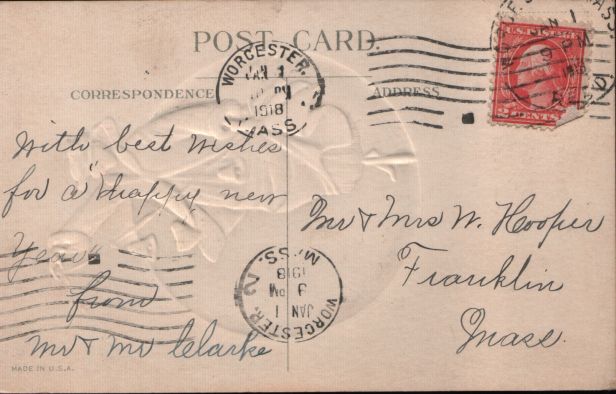 POST CARD.
CORRESPONDENCE
ADDRESS
WORCESTER,
JAN 1
PM
1918
MASS
U.S. POSTAGE
2 CENTS
With best wishes
for a "Happy new
Year"
from
Mr & Mr Clarke
Mr & Mrs W. Hooper
Franklin
Mass.
WORCESTER, 2
JAN 1
9 PM
1918
MASS.
MADE IN U.S.A.